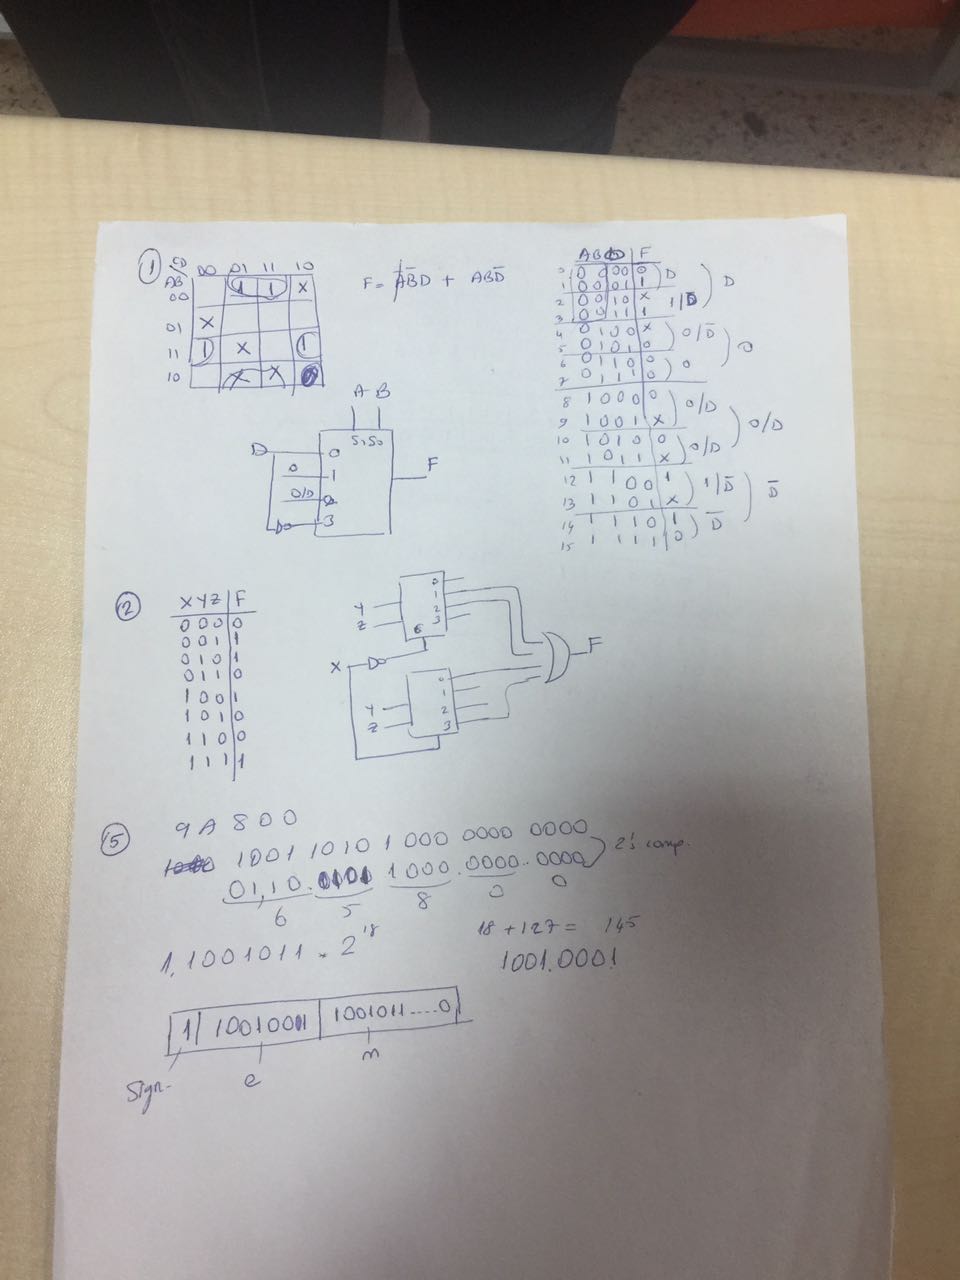 1
CD
AB
00 01 11 10
00 1 1 X
01 X
11 1 X 1
10 X X
F = A̅B̅D + ABD̅
A B
D
S1 S0
0
0 1
0/D 2
3
F
AB CD F
0 0 0 0 0 0
1 0 0 0 1 1
D
2 0 0 1 0 X
3 0 0 1 1 1
1/D
D
4 0 1 0 0 X
5 0 1 0 1 0
0/D̅
6 0 1 1 0 0
7 0 1 1 1 0
0
0
8 1 0 0 0 0
9 1 0 0 1 X
0/D
10 1 0 1 0 0
11 1 0 1 1 X
0/D
0/D
12 1 1 0 0 1
13 1 1 0 1 X
1/D̅
14 1 1 1 0 1
15 1 1 1 1 0
D̅
D̅
2
X Y Z F
0 0 0 0
0 0 1 1
0 1 0 1
0 1 1 0
1 0 0 1
1 0 1 0
1 1 0 0
1 1 1 1
Y
Z
0
1
2
3
X
Y
Z
0
1
2
3
F
5
9A800
1001 1010 1000 0000 0000
01,10.0101 1000.0000.0000
2's comp.
6 5 8 0 0
1,1001011 * 2^18
18 + 127 = 145
1001.0001
1 10010001 1001011....0
Sign. e m